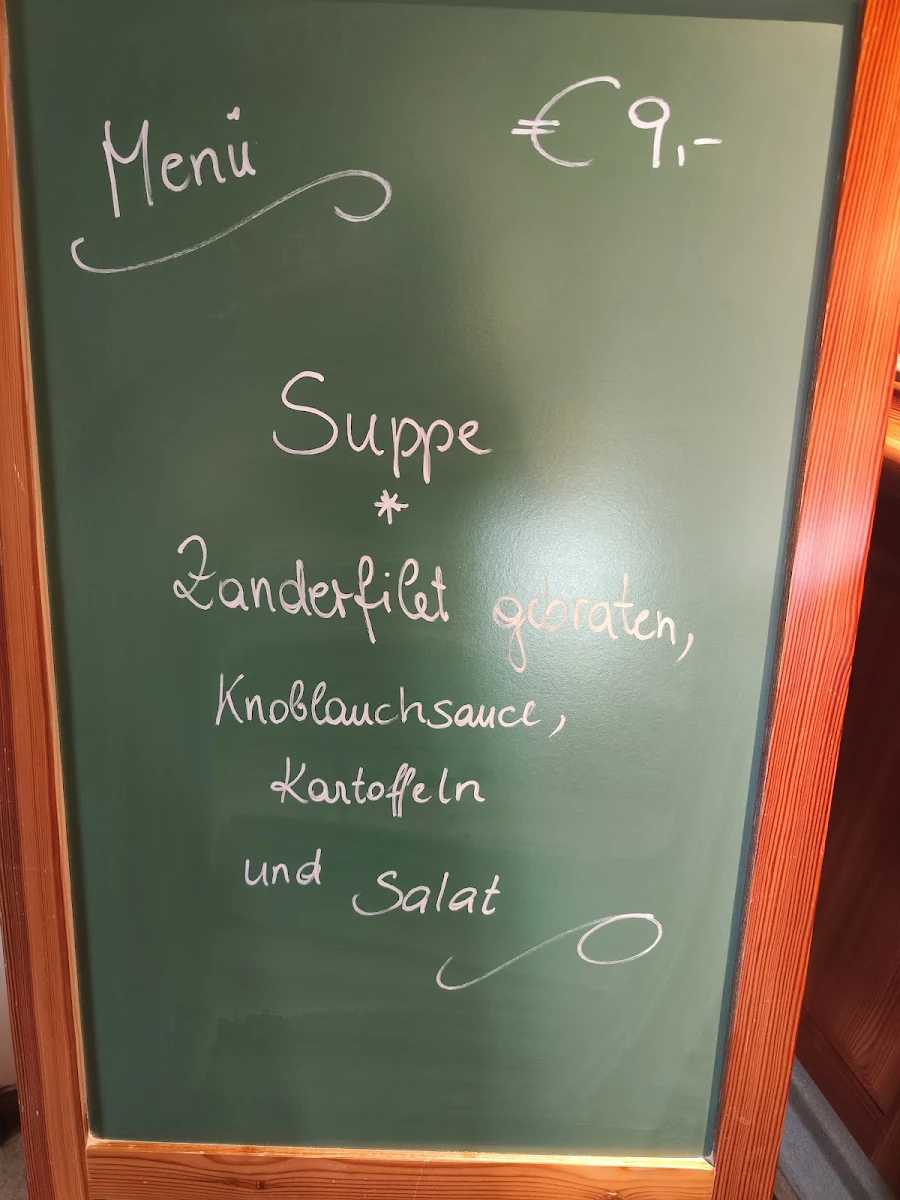 Menü € 9,-
Suppe
*
Zanderfilet gebraten,
Knoblauchsauce,
Kartoffeln
und Salat